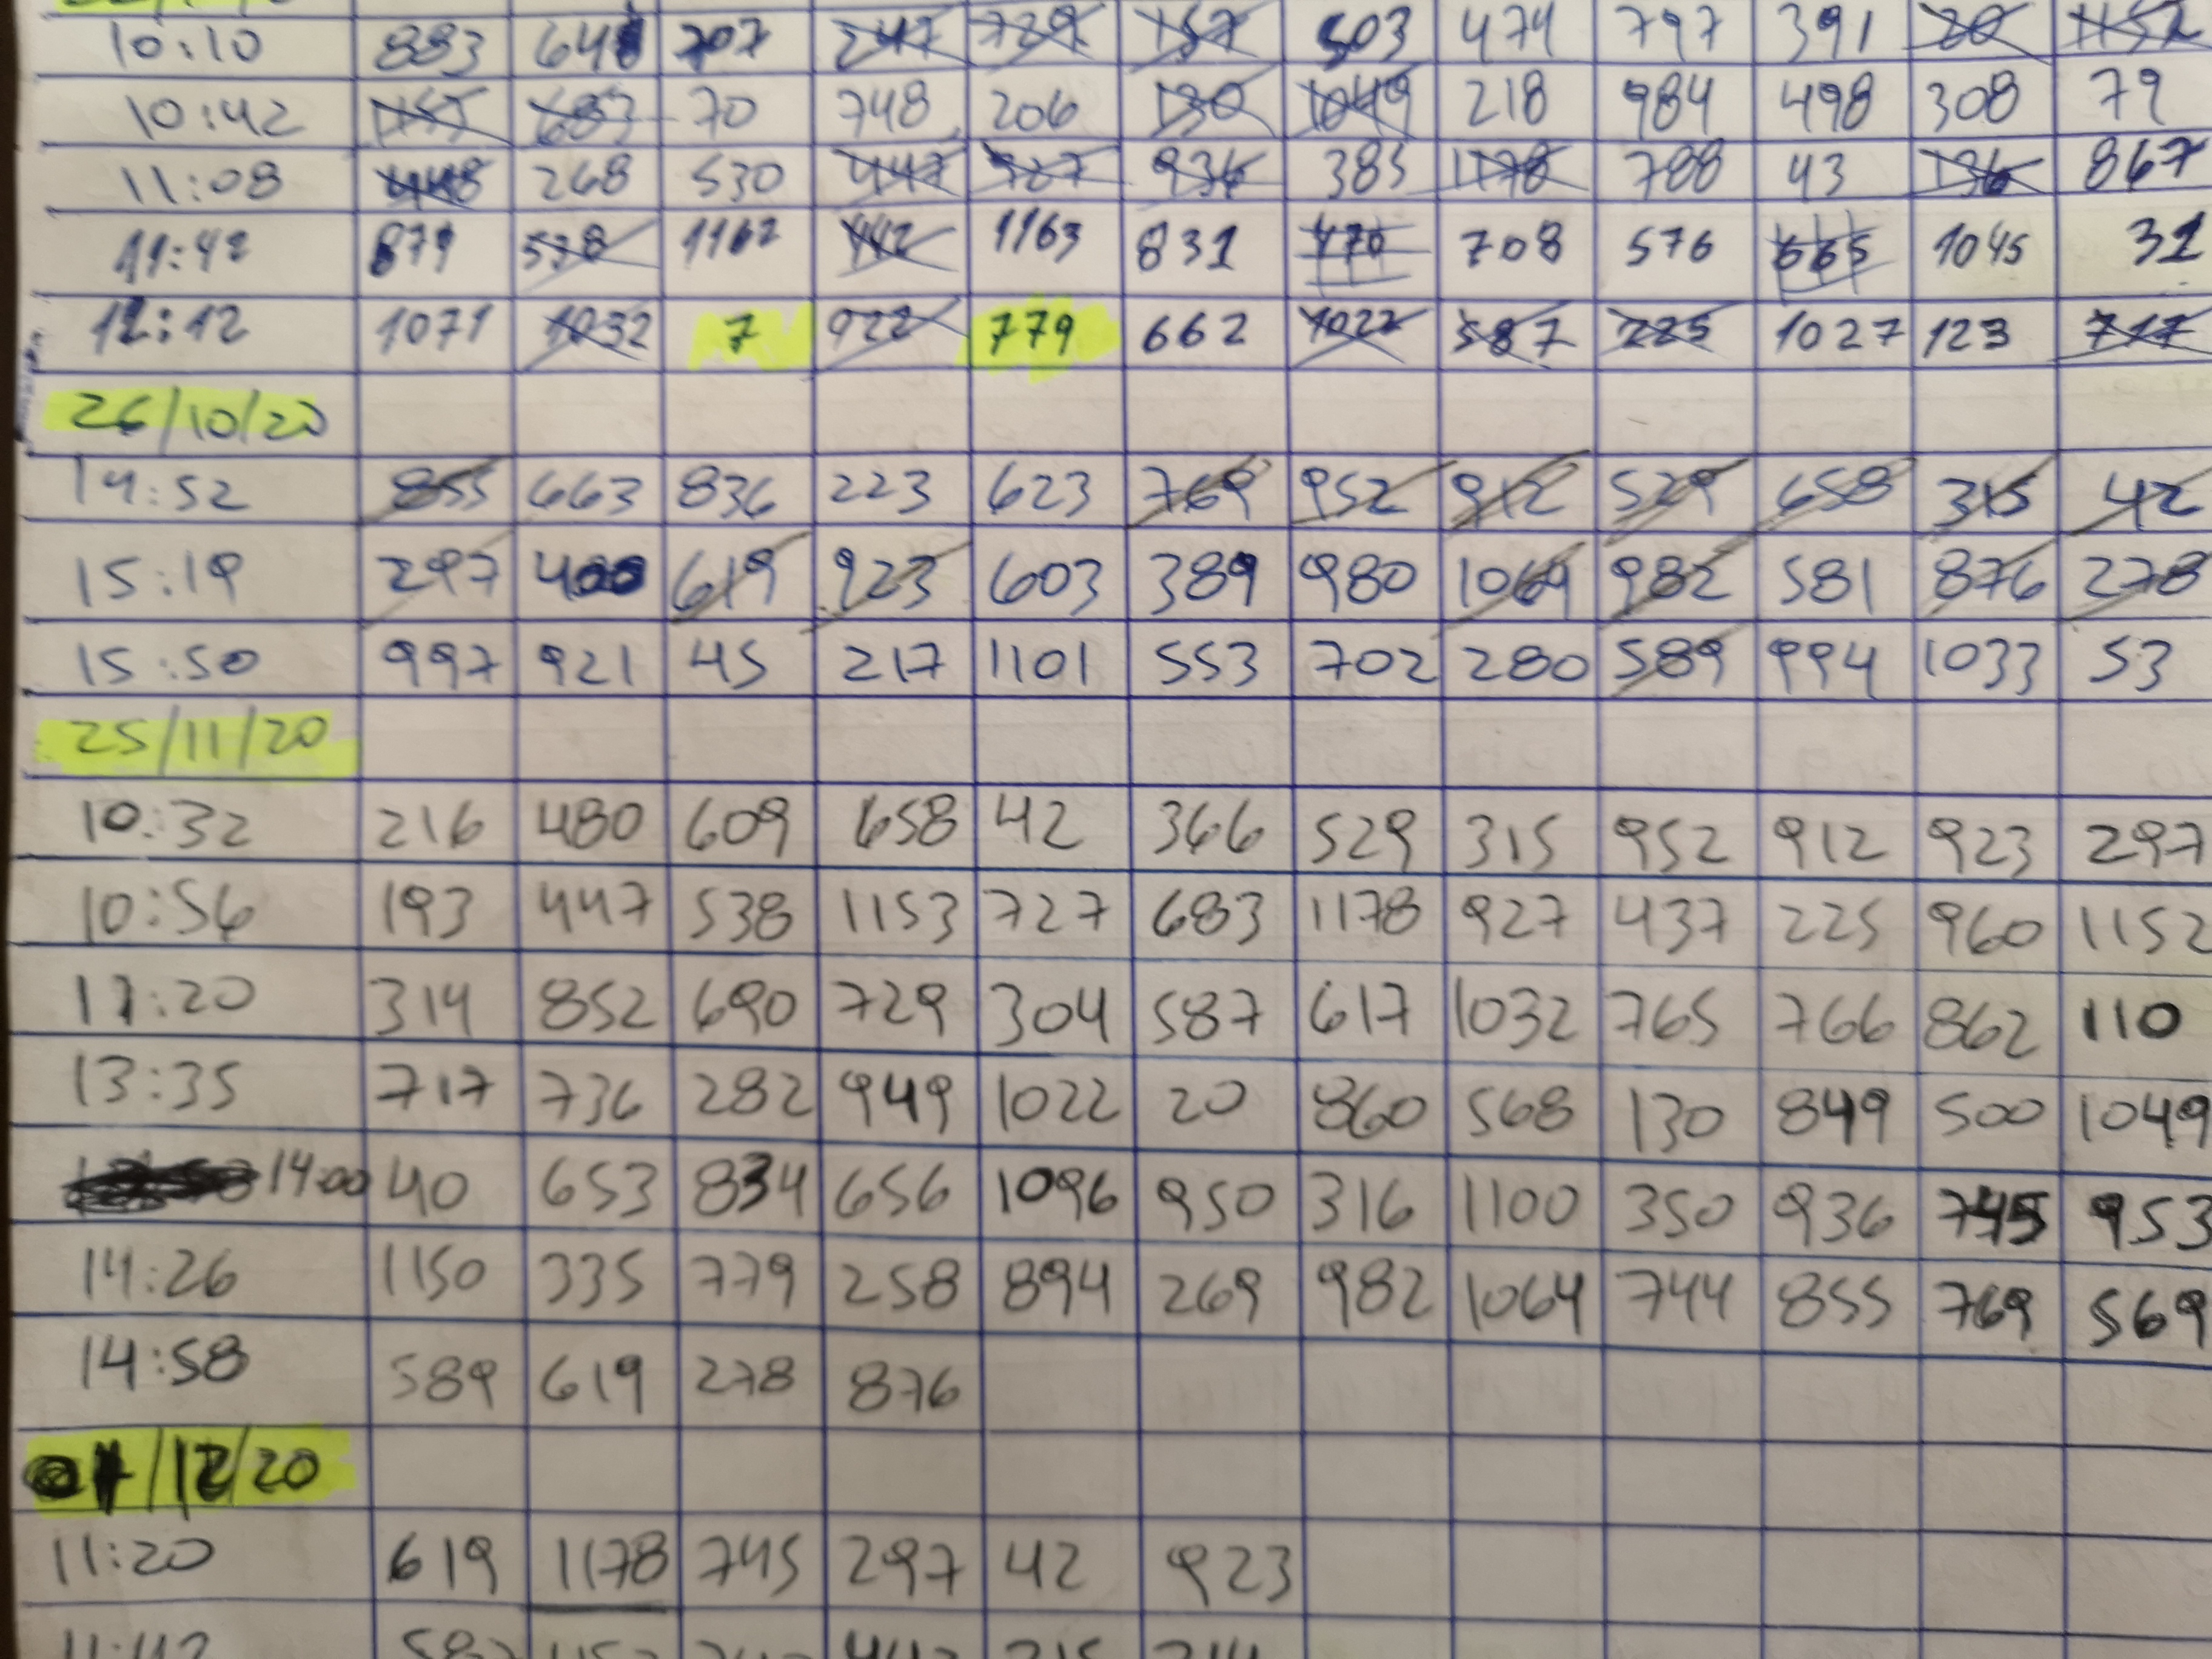 10:10 883 641 707 247 729 157 503 474 797 391 20 1152
10:42 1153 683 70 748 206 130 1049 218 984 498 308 79
11:08 448 268 530 447 927 936 385 1178 788 43 136 867
11:42 879 538 1162 442 1163 831 470 708 576 665 1045 31
12:12 1071 1032 7 922 779 662 1022 587 225 1027 123 717
26/10/20
14:52 855 663 836 223 623 769 952 912 529 658 315 42
15:19 297 400 619 923 603 389 980 1064 982 581 876 278
15:50 997 921 45 217 1101 553 702 280 589 994 1033 53
25/11/20
10:32 216 480 609 658 42 366 529 315 952 912 923 297
10:56 193 447 538 1153 727 683 1178 927 437 225 960 1152
11:20 314 852 690 729 304 587 617 1032 765 766 862 110
13:35 717 736 282 949 1022 20 860 568 130 849 500 1049
14:00 40 653 834 656 1096 950 316 1100 350 936 745 953
14:26 1150 335 779 258 894 269 982 1064 744 855 769 569
14:58 589 619 278 876
01/12/20
11:20 619 1178 745 297 42 923